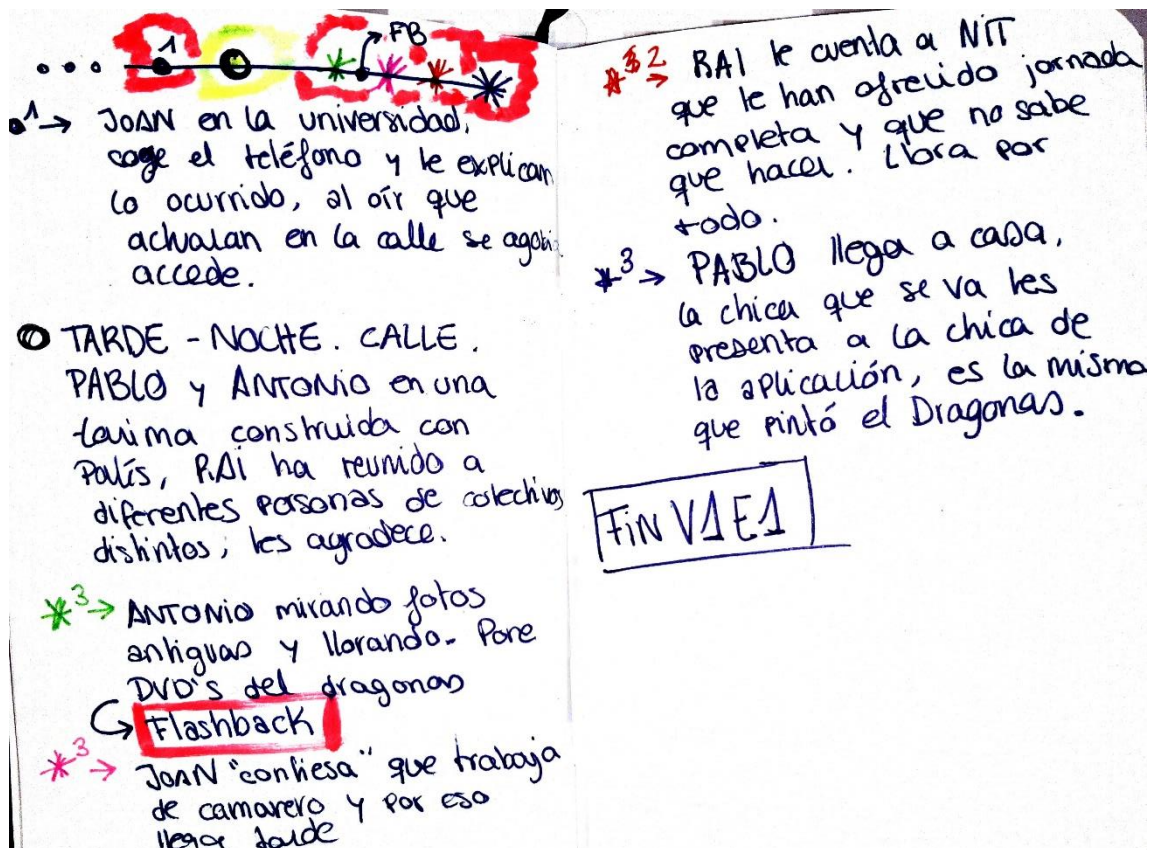 1
FB
1→ JOAN en la universidad,
coge el teléfono y le explican
lo ocurrido, al oír que
actualan en la calle se agobi
accede.
TARDE - NOCHE. CALLE.
PABLO y ANTONIO en una
tarima construida con
Palís, RAI ha reunido a
diferentes personas de colectivos
distintos, les agradece.
*3→ ANTONIO mirando fotos
antiguas y llorando. Pone
DVD'S del dragonas
Flashback
*3→ JOAN "confiesa" que trabaja
de camarero y por eso
llega tarde
2→ RAI le cuenta a NIT
que le han ofrecido jornada
completa y que no sabe
que hacer. Llora por
todo.
*3→ PABLO llega a casa,
la chica que se va les
presenta a la chica de
la aplicación, es la misma
que pintó el Dragonas.
FiN V1 E1